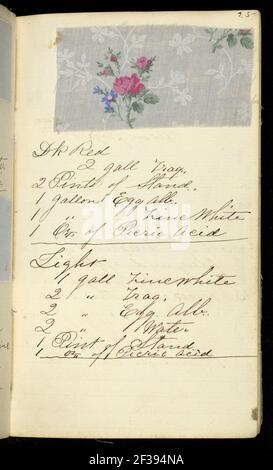 25
Dk Red
2 gall Trag.
2 Pints of Stand.
1 gallon Egg Alb.
1 " Zinc White
1 Oz. of Picric Acid
Light
1 gall Zinc white
2 " Trag.
2 " Egg Alb.
2 " Water
1 Pint of Stand
1 Oz of Picric Acid
alamy
Image ID: 2F394NA
www.alamy.com